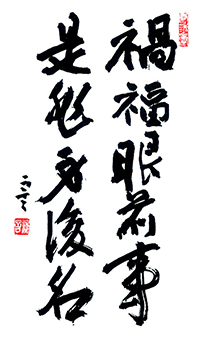 禍福眼前事
是非身後名